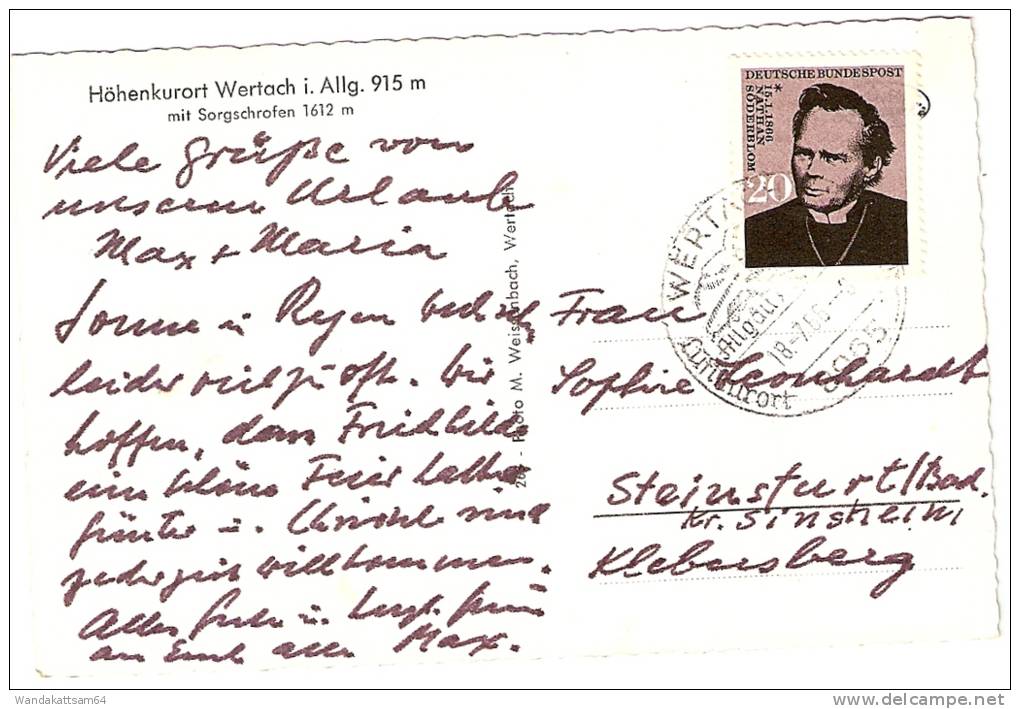 Höhenkurort Wertach i. Allg. 915 m
mit Sorgschrofen 1612 m
Viele Grüße von
unserem Urlaub
Max + Maria
Sonne u. Regen
leider viel zu oft. Wir
hoffen, dass
eine schöne Feier
Günter u. sind
jederzeit willkommen.
Alles Gute u. herzl. Grüße
an Euch alle Max.
Photo M. Weissenbach, Wertach
DEUTSCHE BUNDESPOST
* 15.1.1866
NATHAN
SÖDERBLOM
20
WERTA
Allgäu
18-7.66-8
8965
Luftkurort
Frau
Sophie Leonhardt
Steinsfurt/Bad.
Kr. Sinsheim
Klebersberg
Wandakattsam64
www.delcampe.net